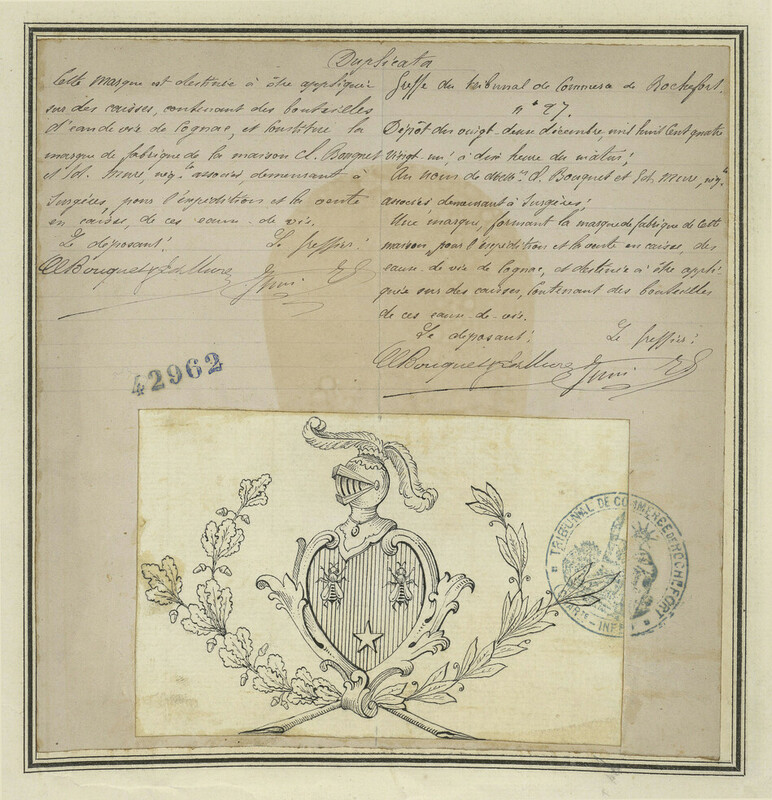 Duplicata
Cette marque est destinée à être appliquée
sur des caisses, contenant des bouteilles
d'eau de vie de Cognac, et constitue la
marque de fabrique de la maison A. Bouquet
et Ed. Mure, nég.ts associés demeurant à
Surgères, pour l'expédition et la vente
en caisse, de ces eaux-de-vie.
Le déposant: Le greffier:
A Bouquet & Ed. Mure
Greffe du tribunal de Commerce de Rochefort.
n° 97.
Dépôt du vingt-deux décembre, mil huit cent quatre
vingt-un, à dix heure du matin;
Au nom de A. Bouquet et Ed. Mure, nég.ts
associés demeurant à Surgères;
Une marque, formant la marque de fabrique de cette
maison, pour l'expédition et la vente en caisse, des
eaux-de-vie de Cognac, et destinée à être appli-
quée sur des caisses, contenant des bouteilles
de ces eaux-de-vie.
Le déposant: Le greffier:
A Bouquet & Ed. Mure
42962
TRIBUNAL DE COMMERCE DE ROCHEFORT